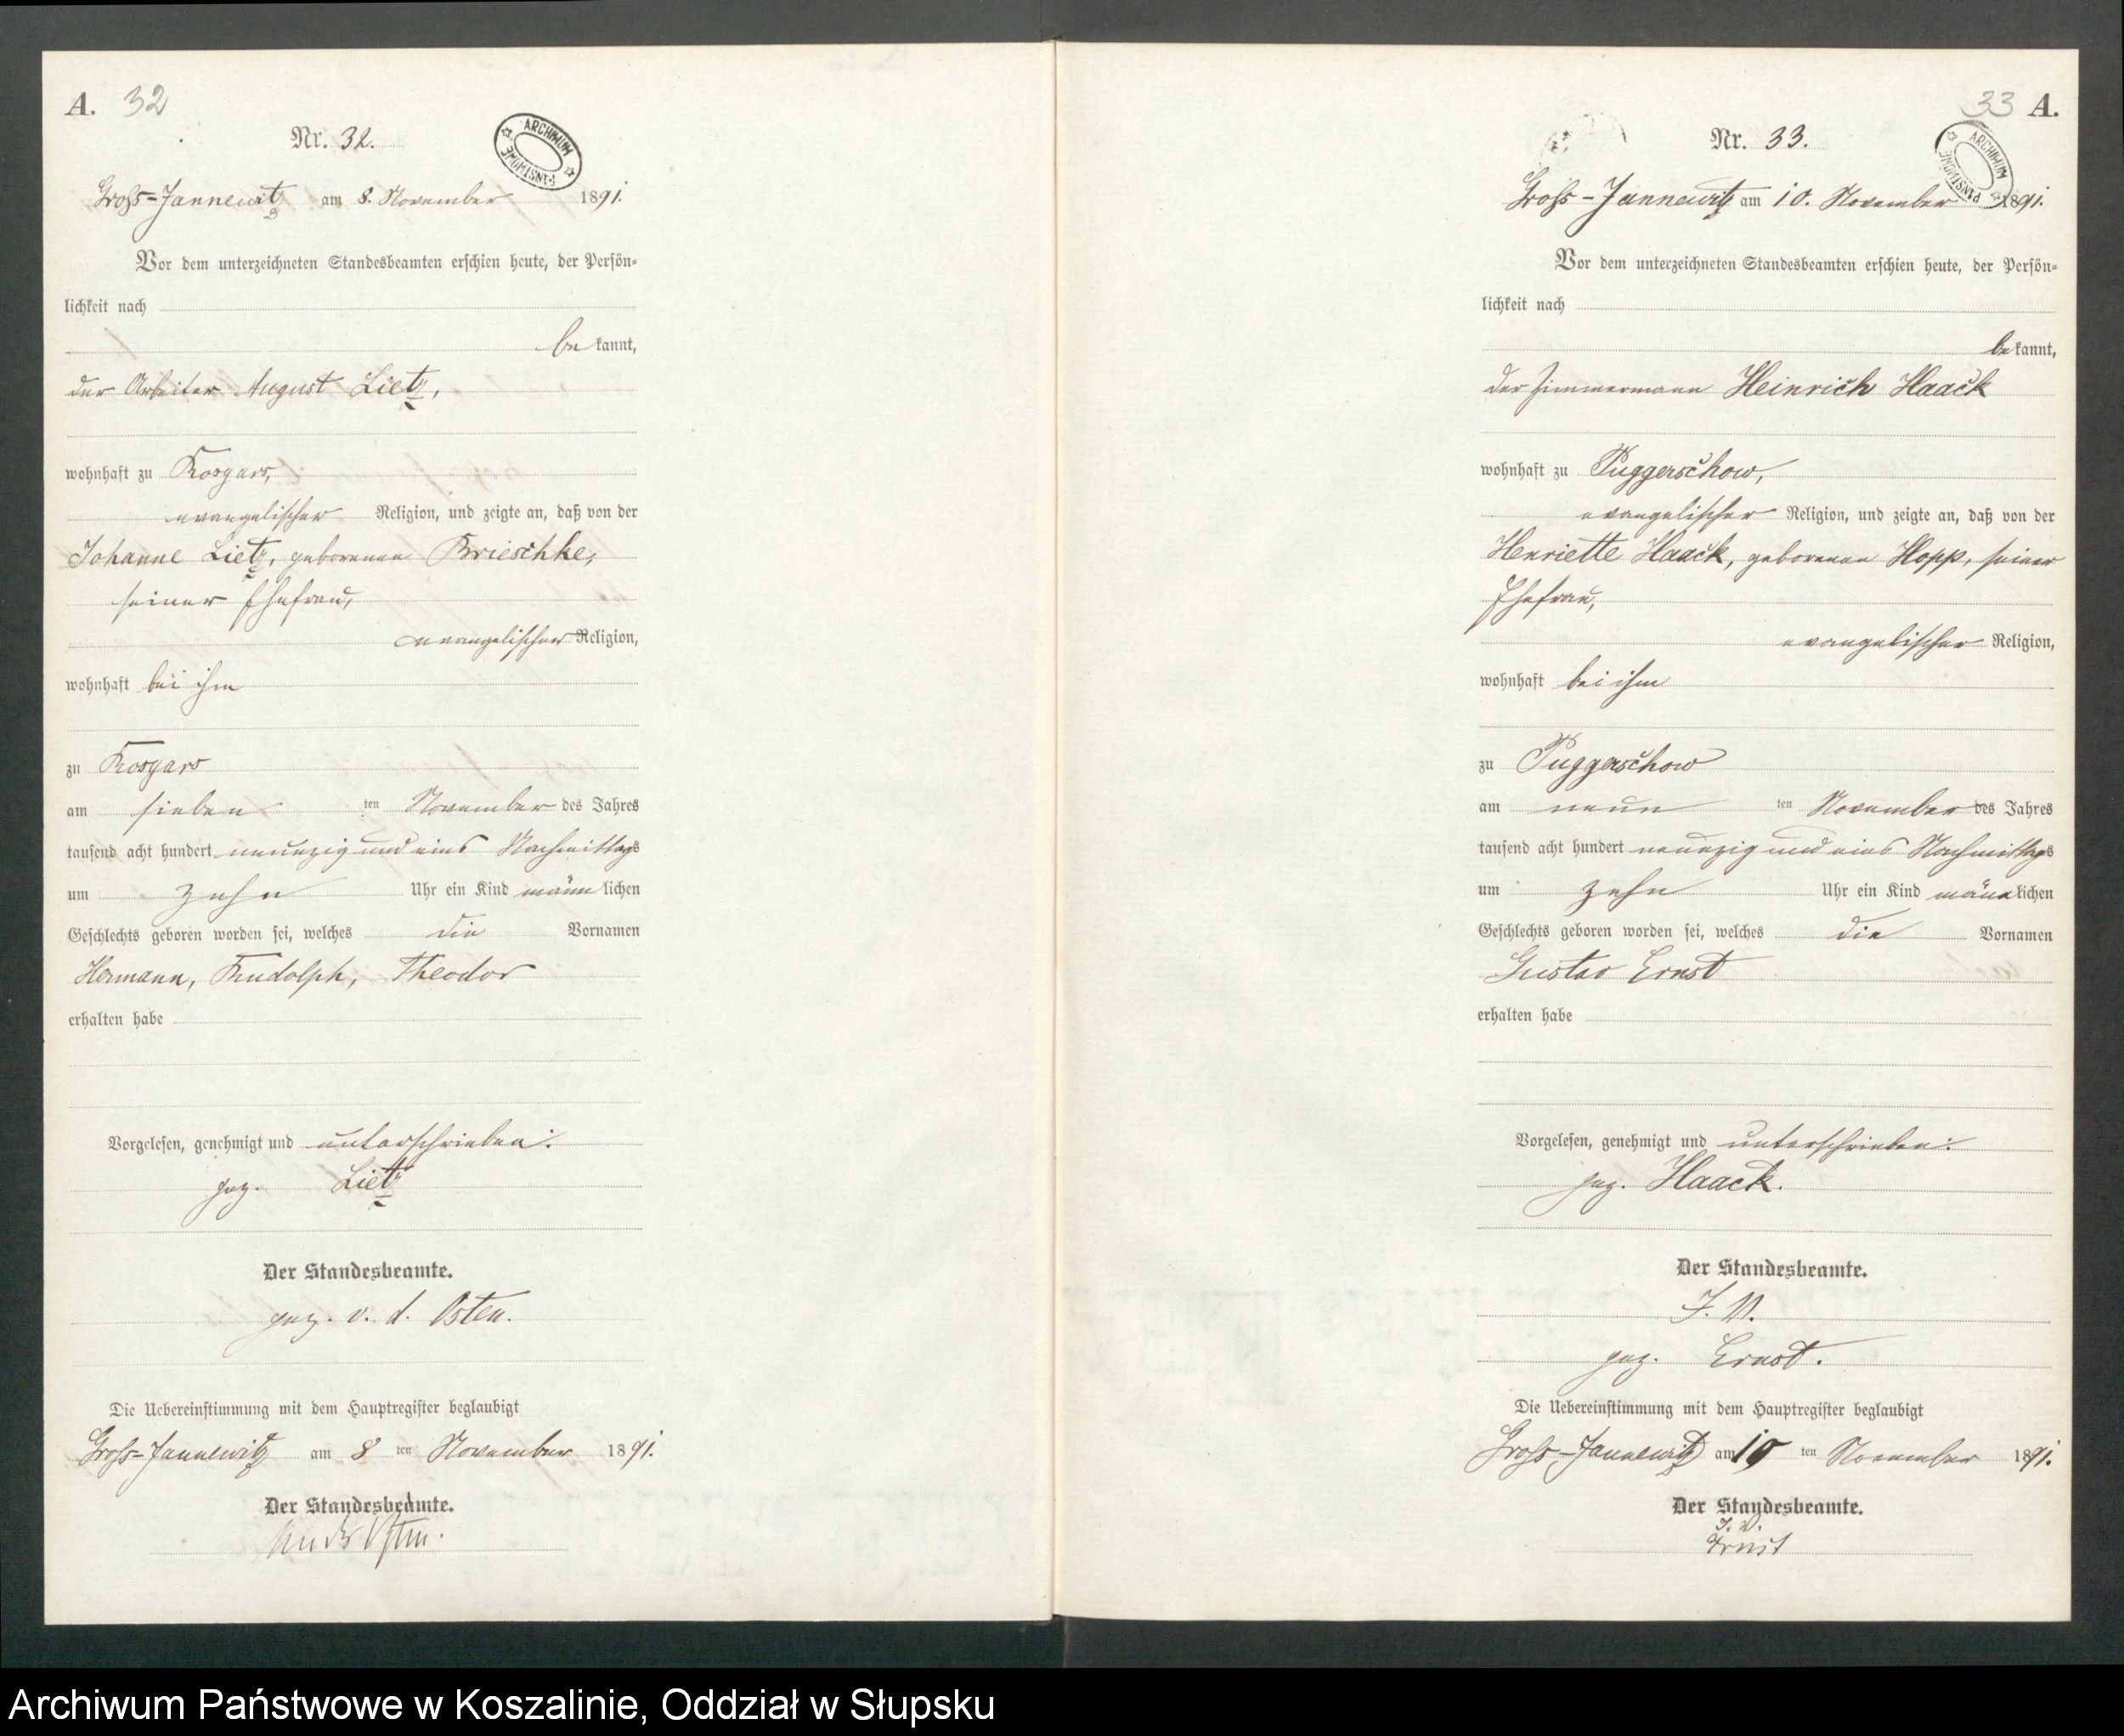 A. 32
Nr. 32.
ARCHIWUM PAŃSTWOWE
Groß-Jannewitz am 8. November 1891.
Vor dem unterzeichneten Standesbeamten erschien heute, der Persön=
lichkeit nach
be kannt,
der Arbeiter August Lietz,
wohnhaft zu Rosgars,
evangelischer Religion, und zeigte an, daß von der
Johanne Lietz, geborenen Brieschke,
seiner Ehefrau,
evangelischer Religion,
wohnhaft bei ihm
zu Rosgars
am sieben ten November des Jahres
tausend acht hundert neunzig und eins Nachmittags
um zehn Uhr ein Kind männ lichen
Geschlechts geboren worden sei, welches die Vornamen
Hermann, Rudolph, Theodor
erhalten habe
Vorgelesen, genehmigt und unterschrieben:
gez. Lietz
Der Standesbeamte.
gez. v. d. Osten.
Die Uebereinstimmung mit dem Hauptregister beglaubigt
Groß-Jannewitz am 8 ten November 1891.
Der Standesbeamte.
Osten.
33 A.
Nr. 33.
ARCHIWUM PAŃSTWOWE
Groß-Jannewitz am 10. November 1891.
Vor dem unterzeichneten Standesbeamten erschien heute, der Persön=
lichkeit nach
be kannt,
der Zimmermann Heinrich Haack
wohnhaft zu Puggerschow,
evangelischer Religion, und zeigte an, daß von der
Henriette Haack, geborenen Hopp, seiner
Ehefrau,
evangelischer Religion,
wohnhaft bei ihm
zu Puggerschow
am neun ten November des Jahres
tausend acht hundert neunzig und eins Nachmittags
um zehn Uhr ein Kind männ lichen
Geschlechts geboren worden sei, welches die Vornamen
Gustav Ernst
erhalten habe
Vorgelesen, genehmigt und unterschrieben:
gez. Haack.
Der Standesbeamte.
J. V.
gez. Ernst.
Die Uebereinstimmung mit dem Hauptregister beglaubigt
Groß-Jannewitz am 10 ten November 1891.
Der Standesbeamte.
J. V.
Ernst
Archiwum Państwowe w Koszalinie, Oddział w Słupsku